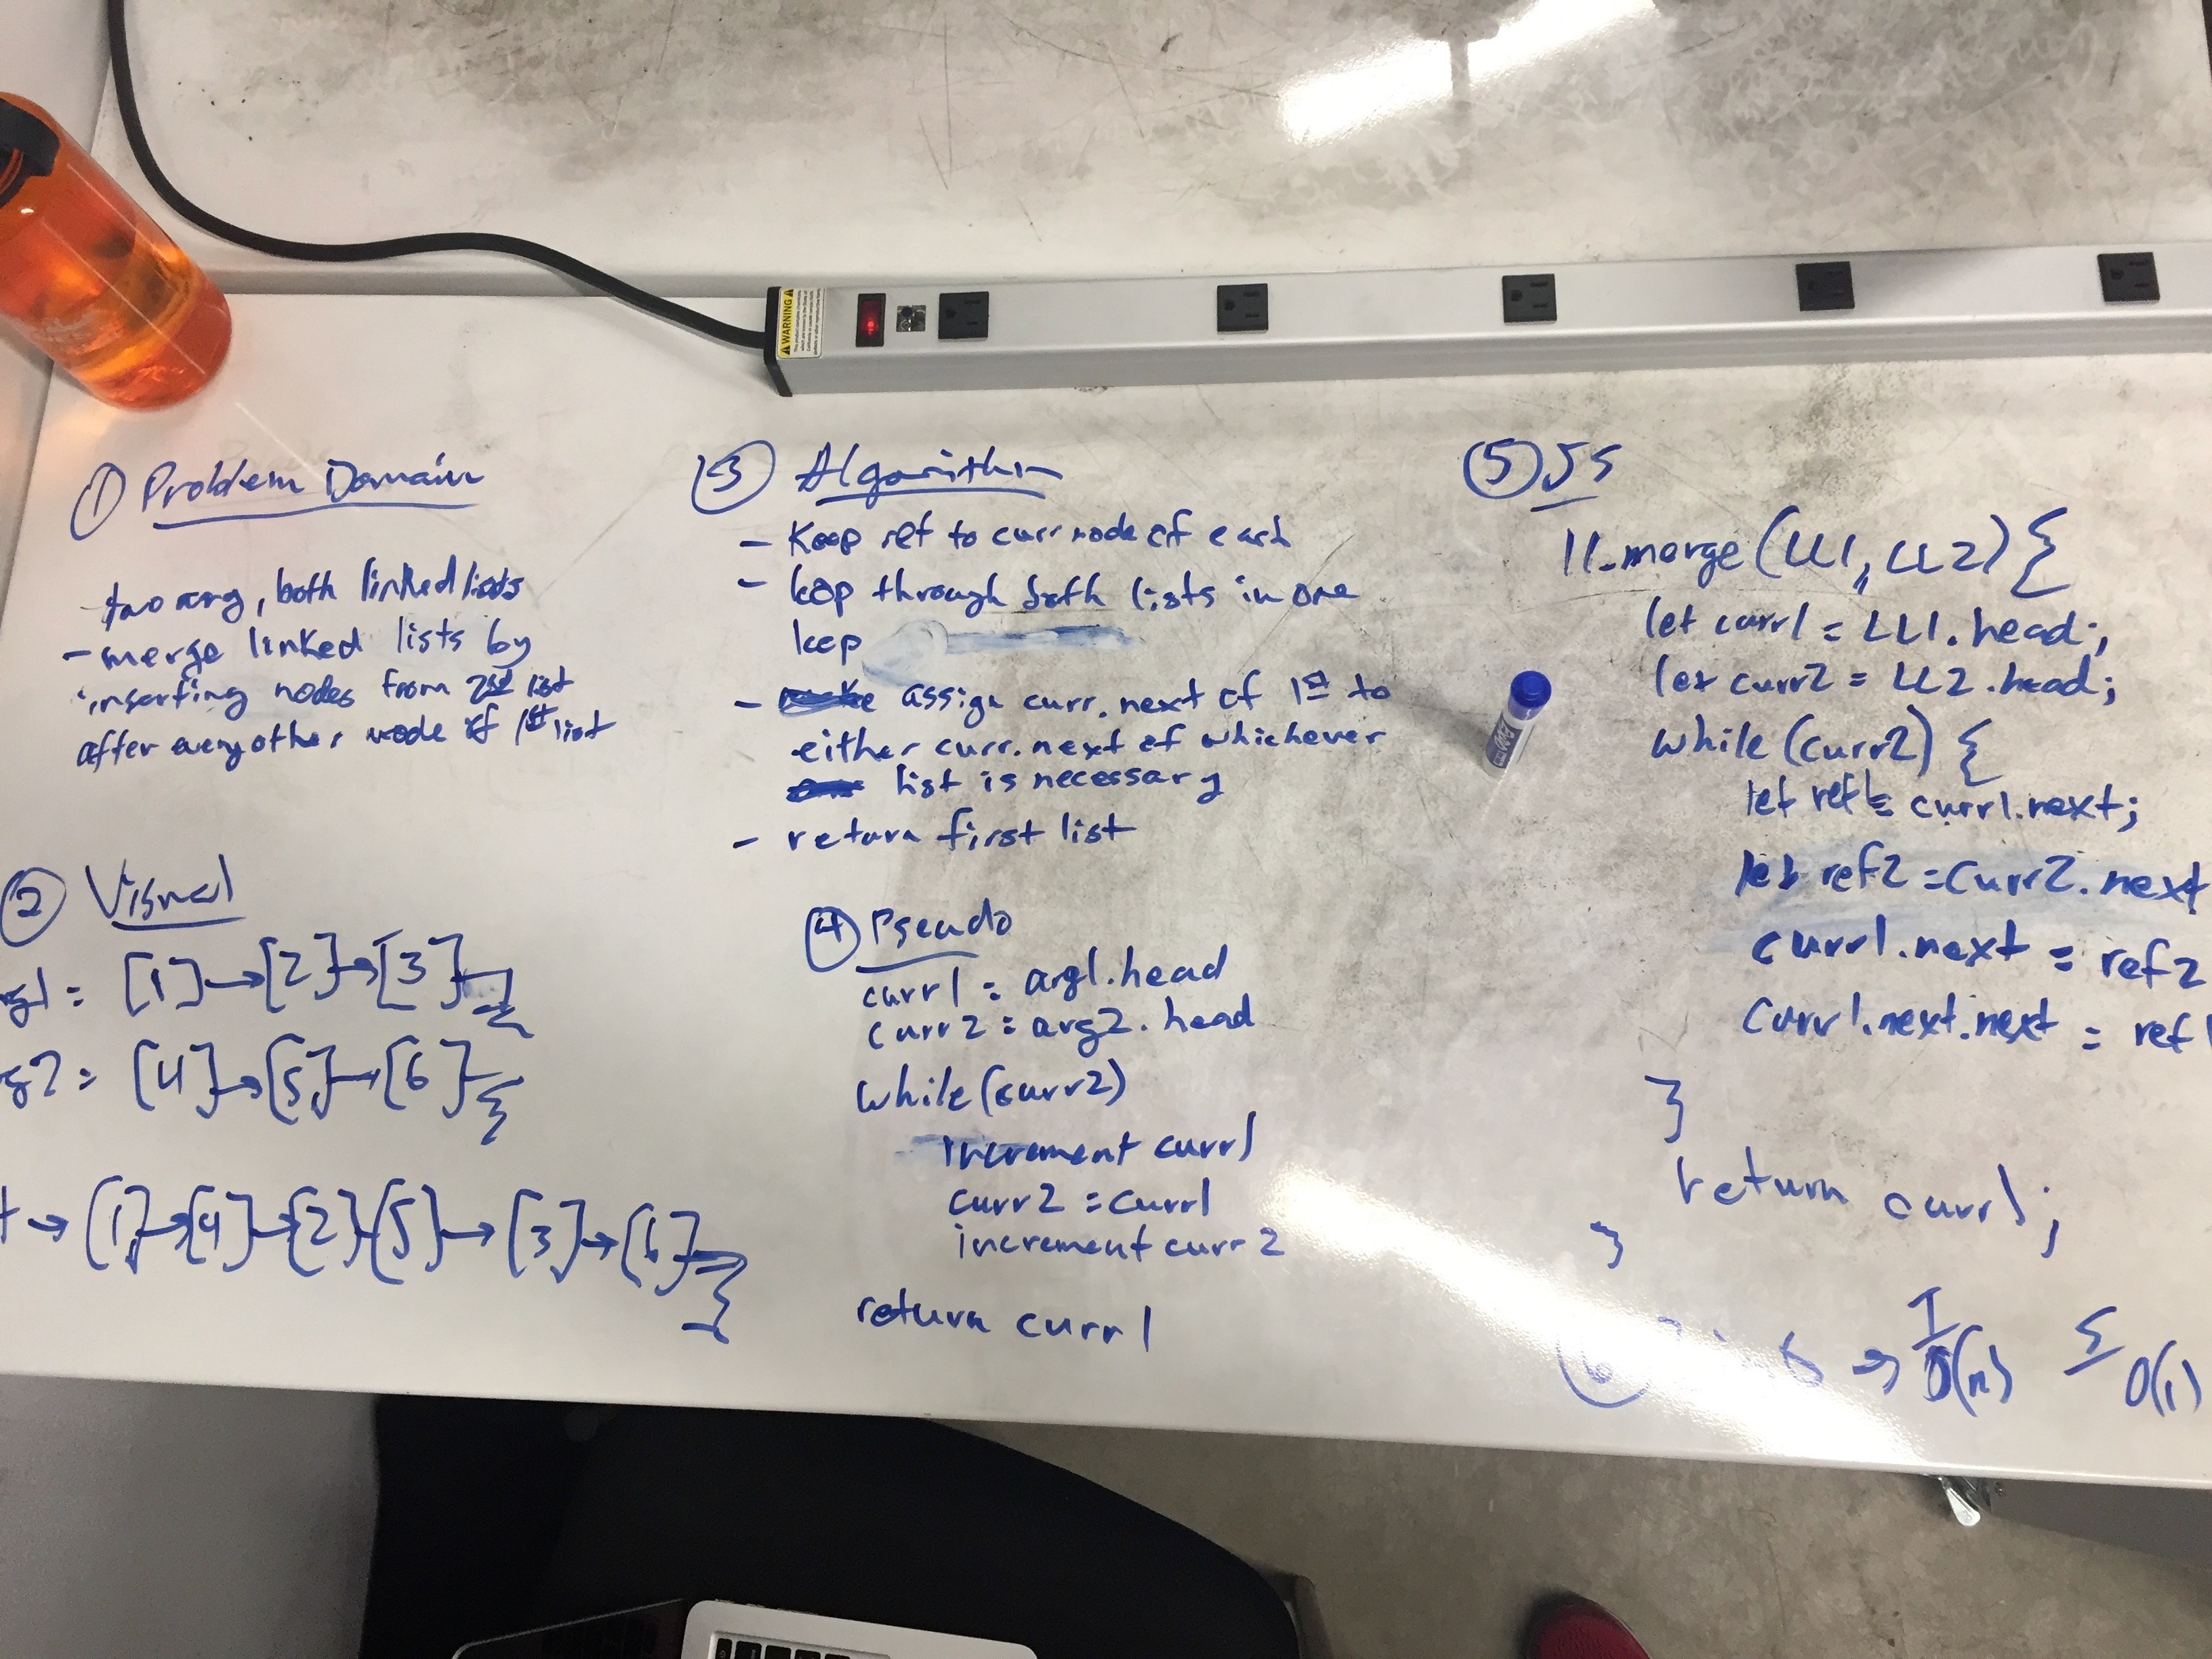 WARNING
① Problem Domain
two arg, both linked lists
- merge linked lists by
inserting nodes from 2nd list
after every other node of 1st list
② Visual
= [1] → [2] → [3]
= [4] → [5] → [6]
→ [1] → [4] → [2] [5] → [3] → [6]
③ Algorithm
- Keep ref to curr node of each
- loop through both lists in one
loop
- assign curr.next of 1st to
either curr.next of whichever
list is necessary
- return first list
④ Pseudo
curr1 = arg1.head
curr2 = arg2.head
while (curr2)
increment curr1
curr2 = curr1
increment curr2
return curr1
⑤ JS
ll_merge (LL1, LL2) {
let curr1 = LL1.head;
let curr2 = LL2.head;
while (curr2) {
let ref1 = curr1.next;
let ref2 = curr2.next
curr1.next = ref2
curr1.next.next = ref1
}
return curr1;
}
⑥ → T O(n) S O(1)
EXPO